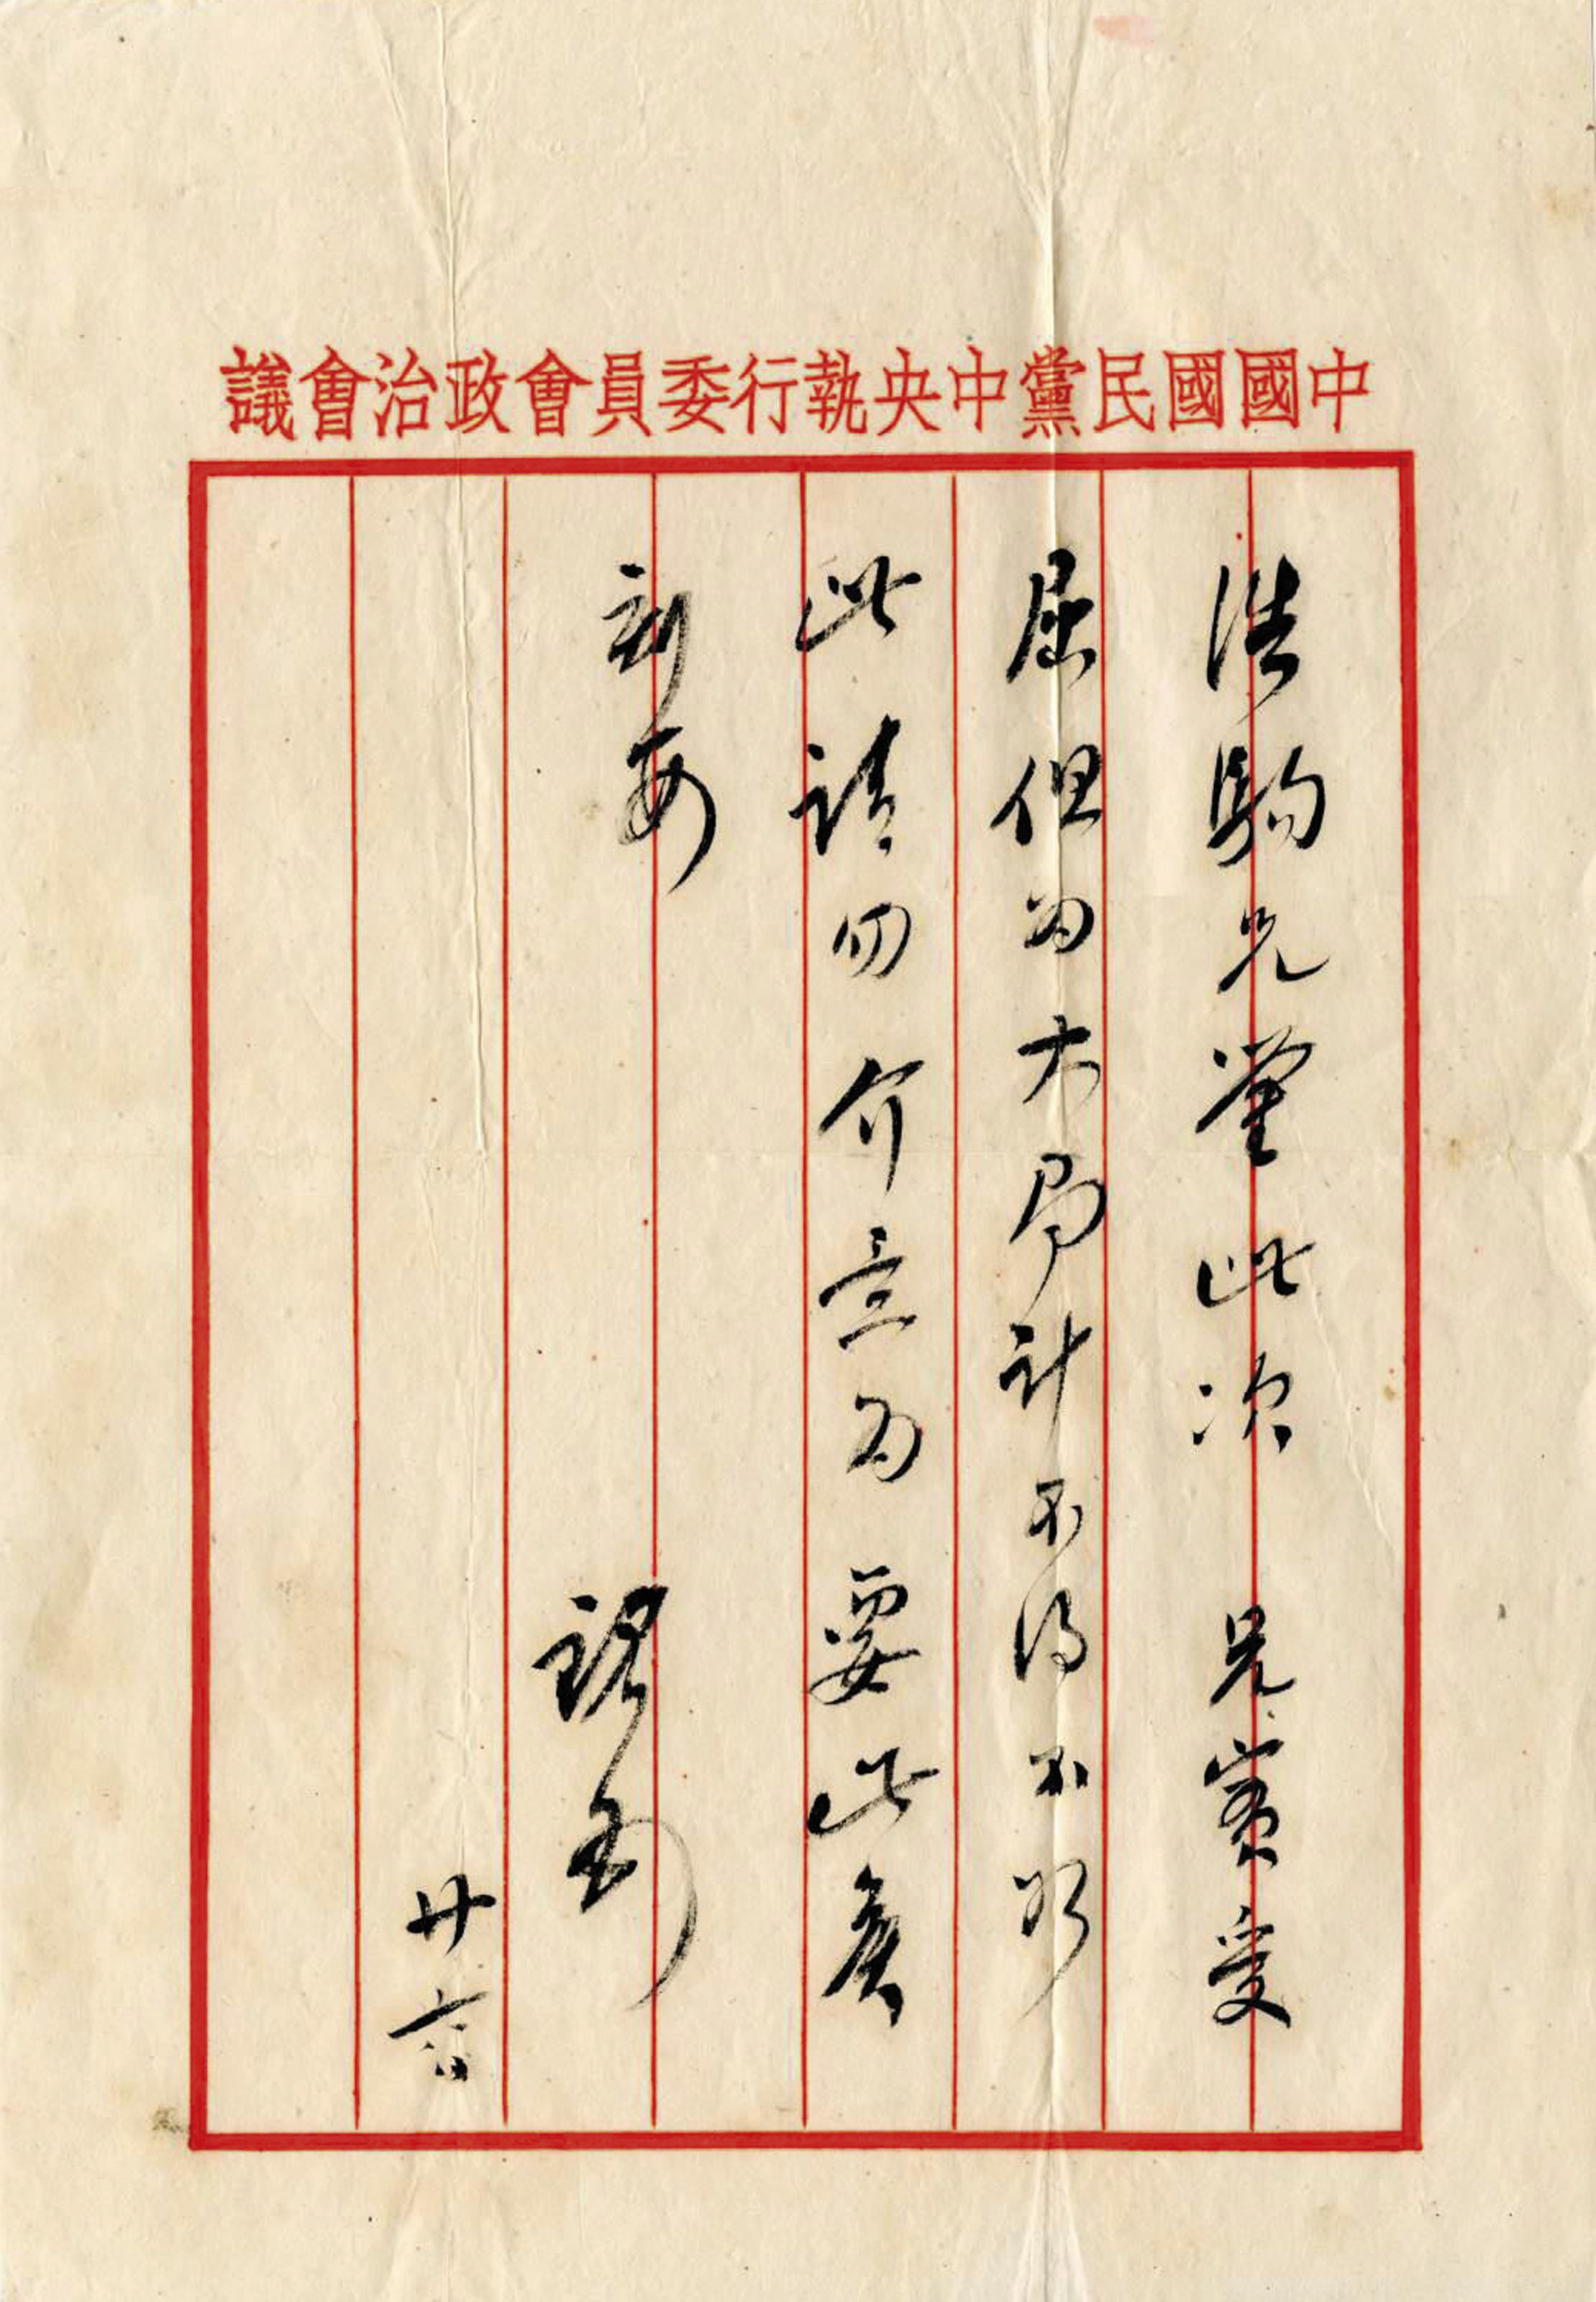 中國國民黨中央執行委員會政治會議
浩駒兄鑒此次 兄實受
屈但為大局計不得不爾
此請勿介意為要此矣
刻安
銘
廿六日